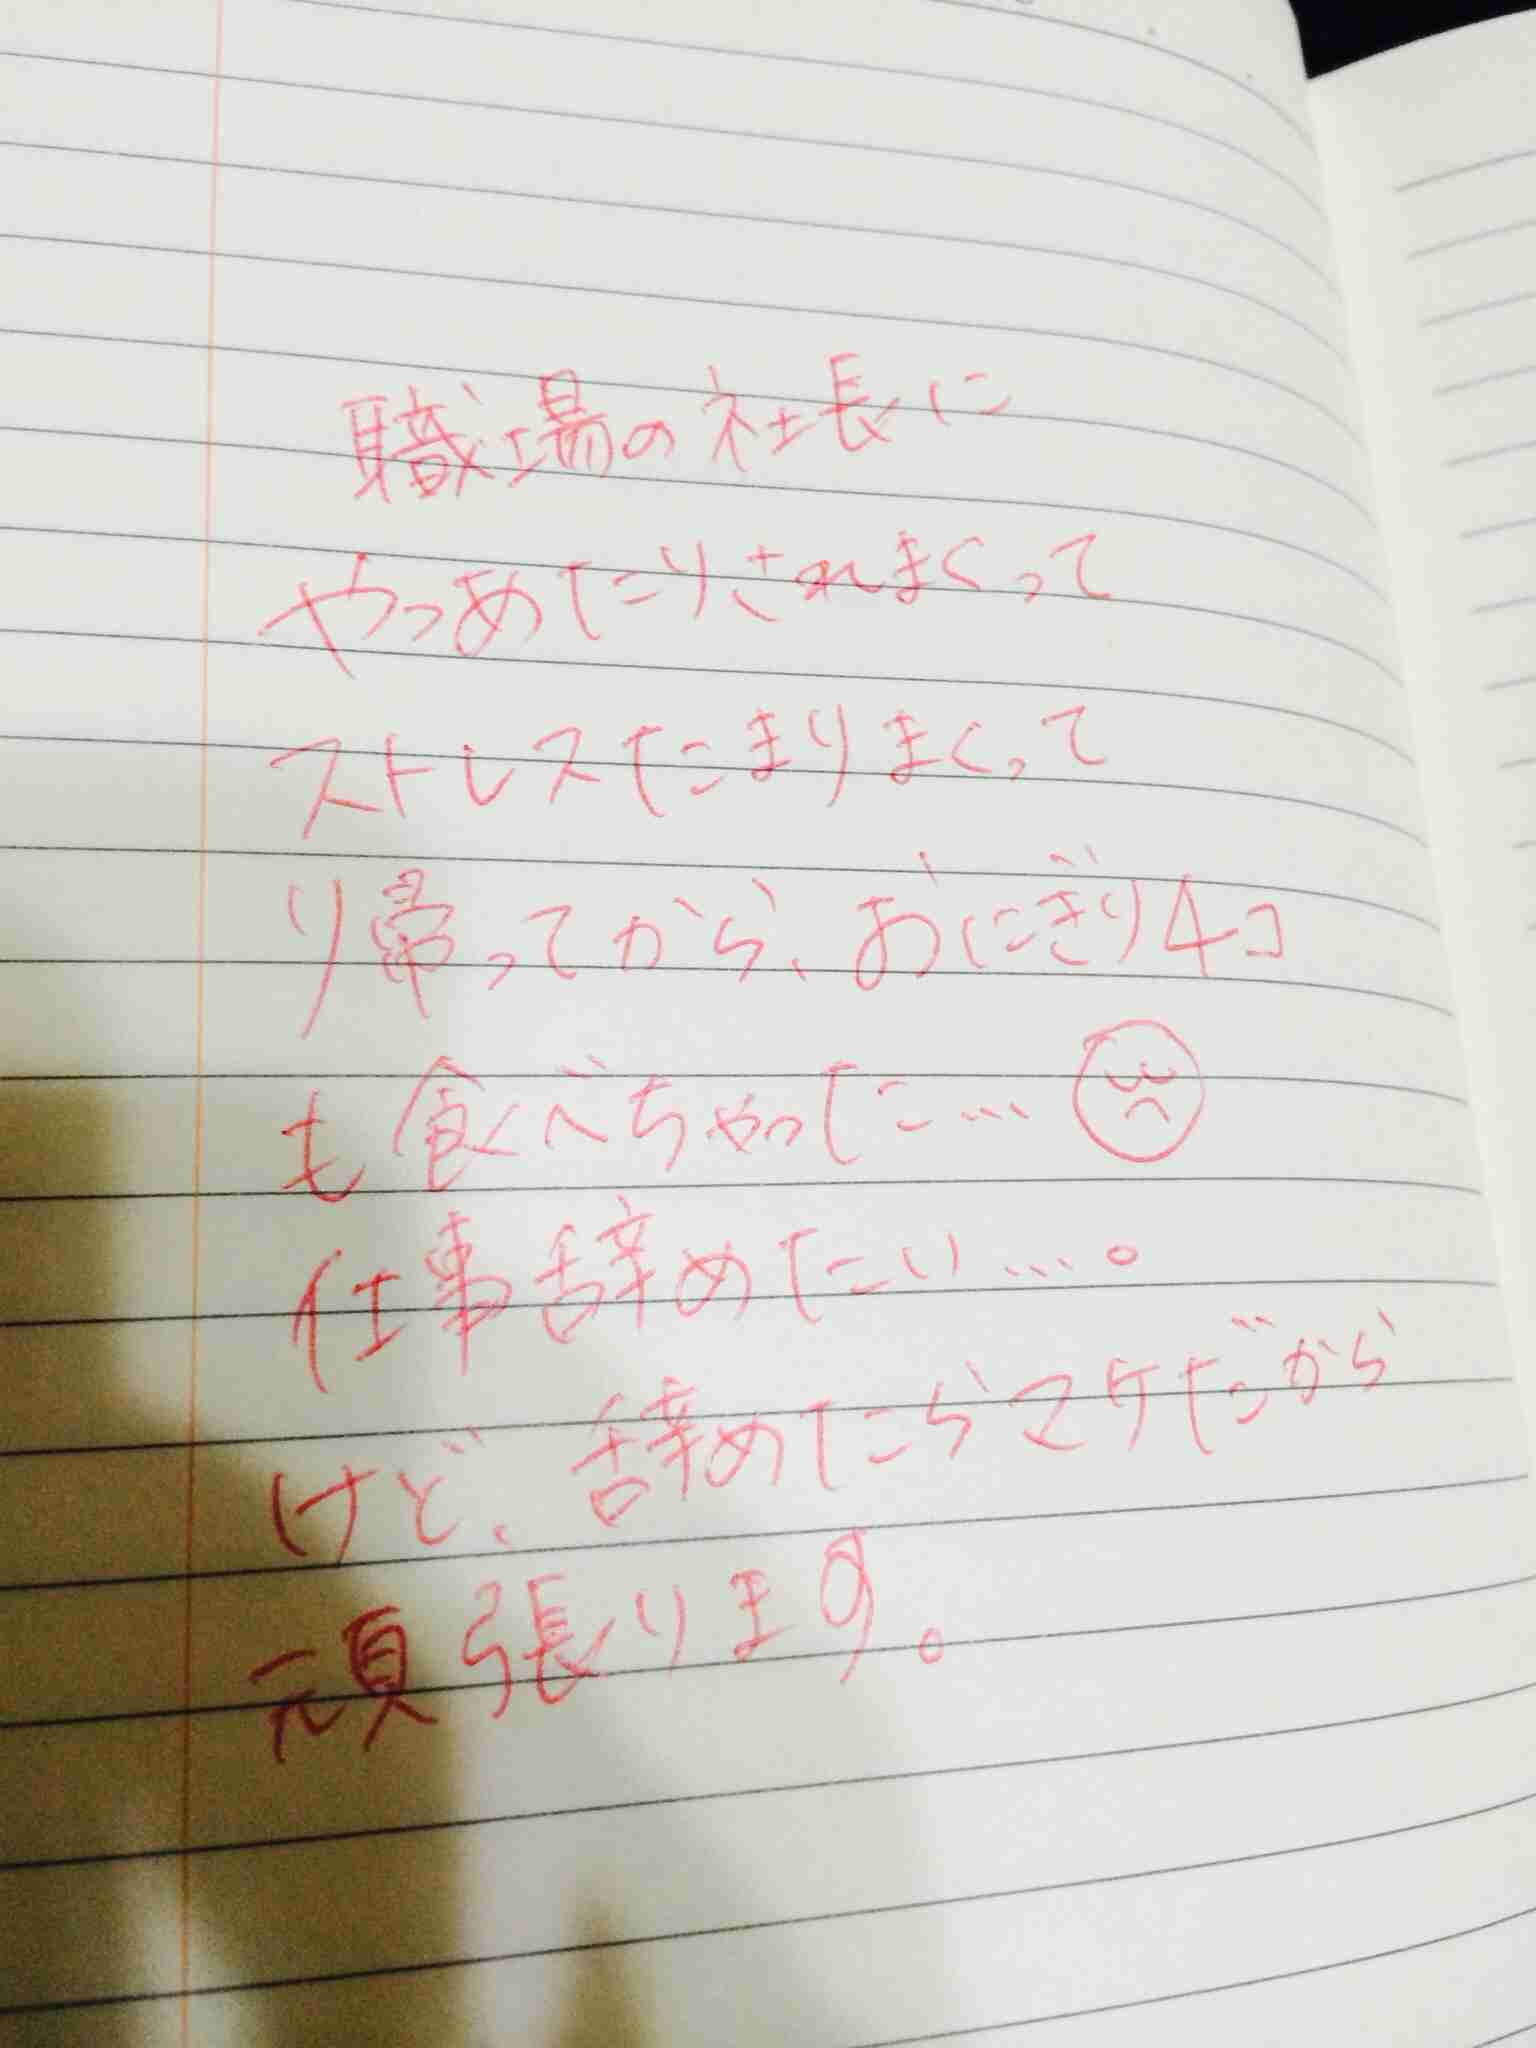 職場の社長に
やつめたりされまくって
ストレスたまりまくって
り帰ってから、おにぎり4コ
も食べちゃった…
仕事辞めたい…。
けど、辞めたらマケだから
頑張ります。